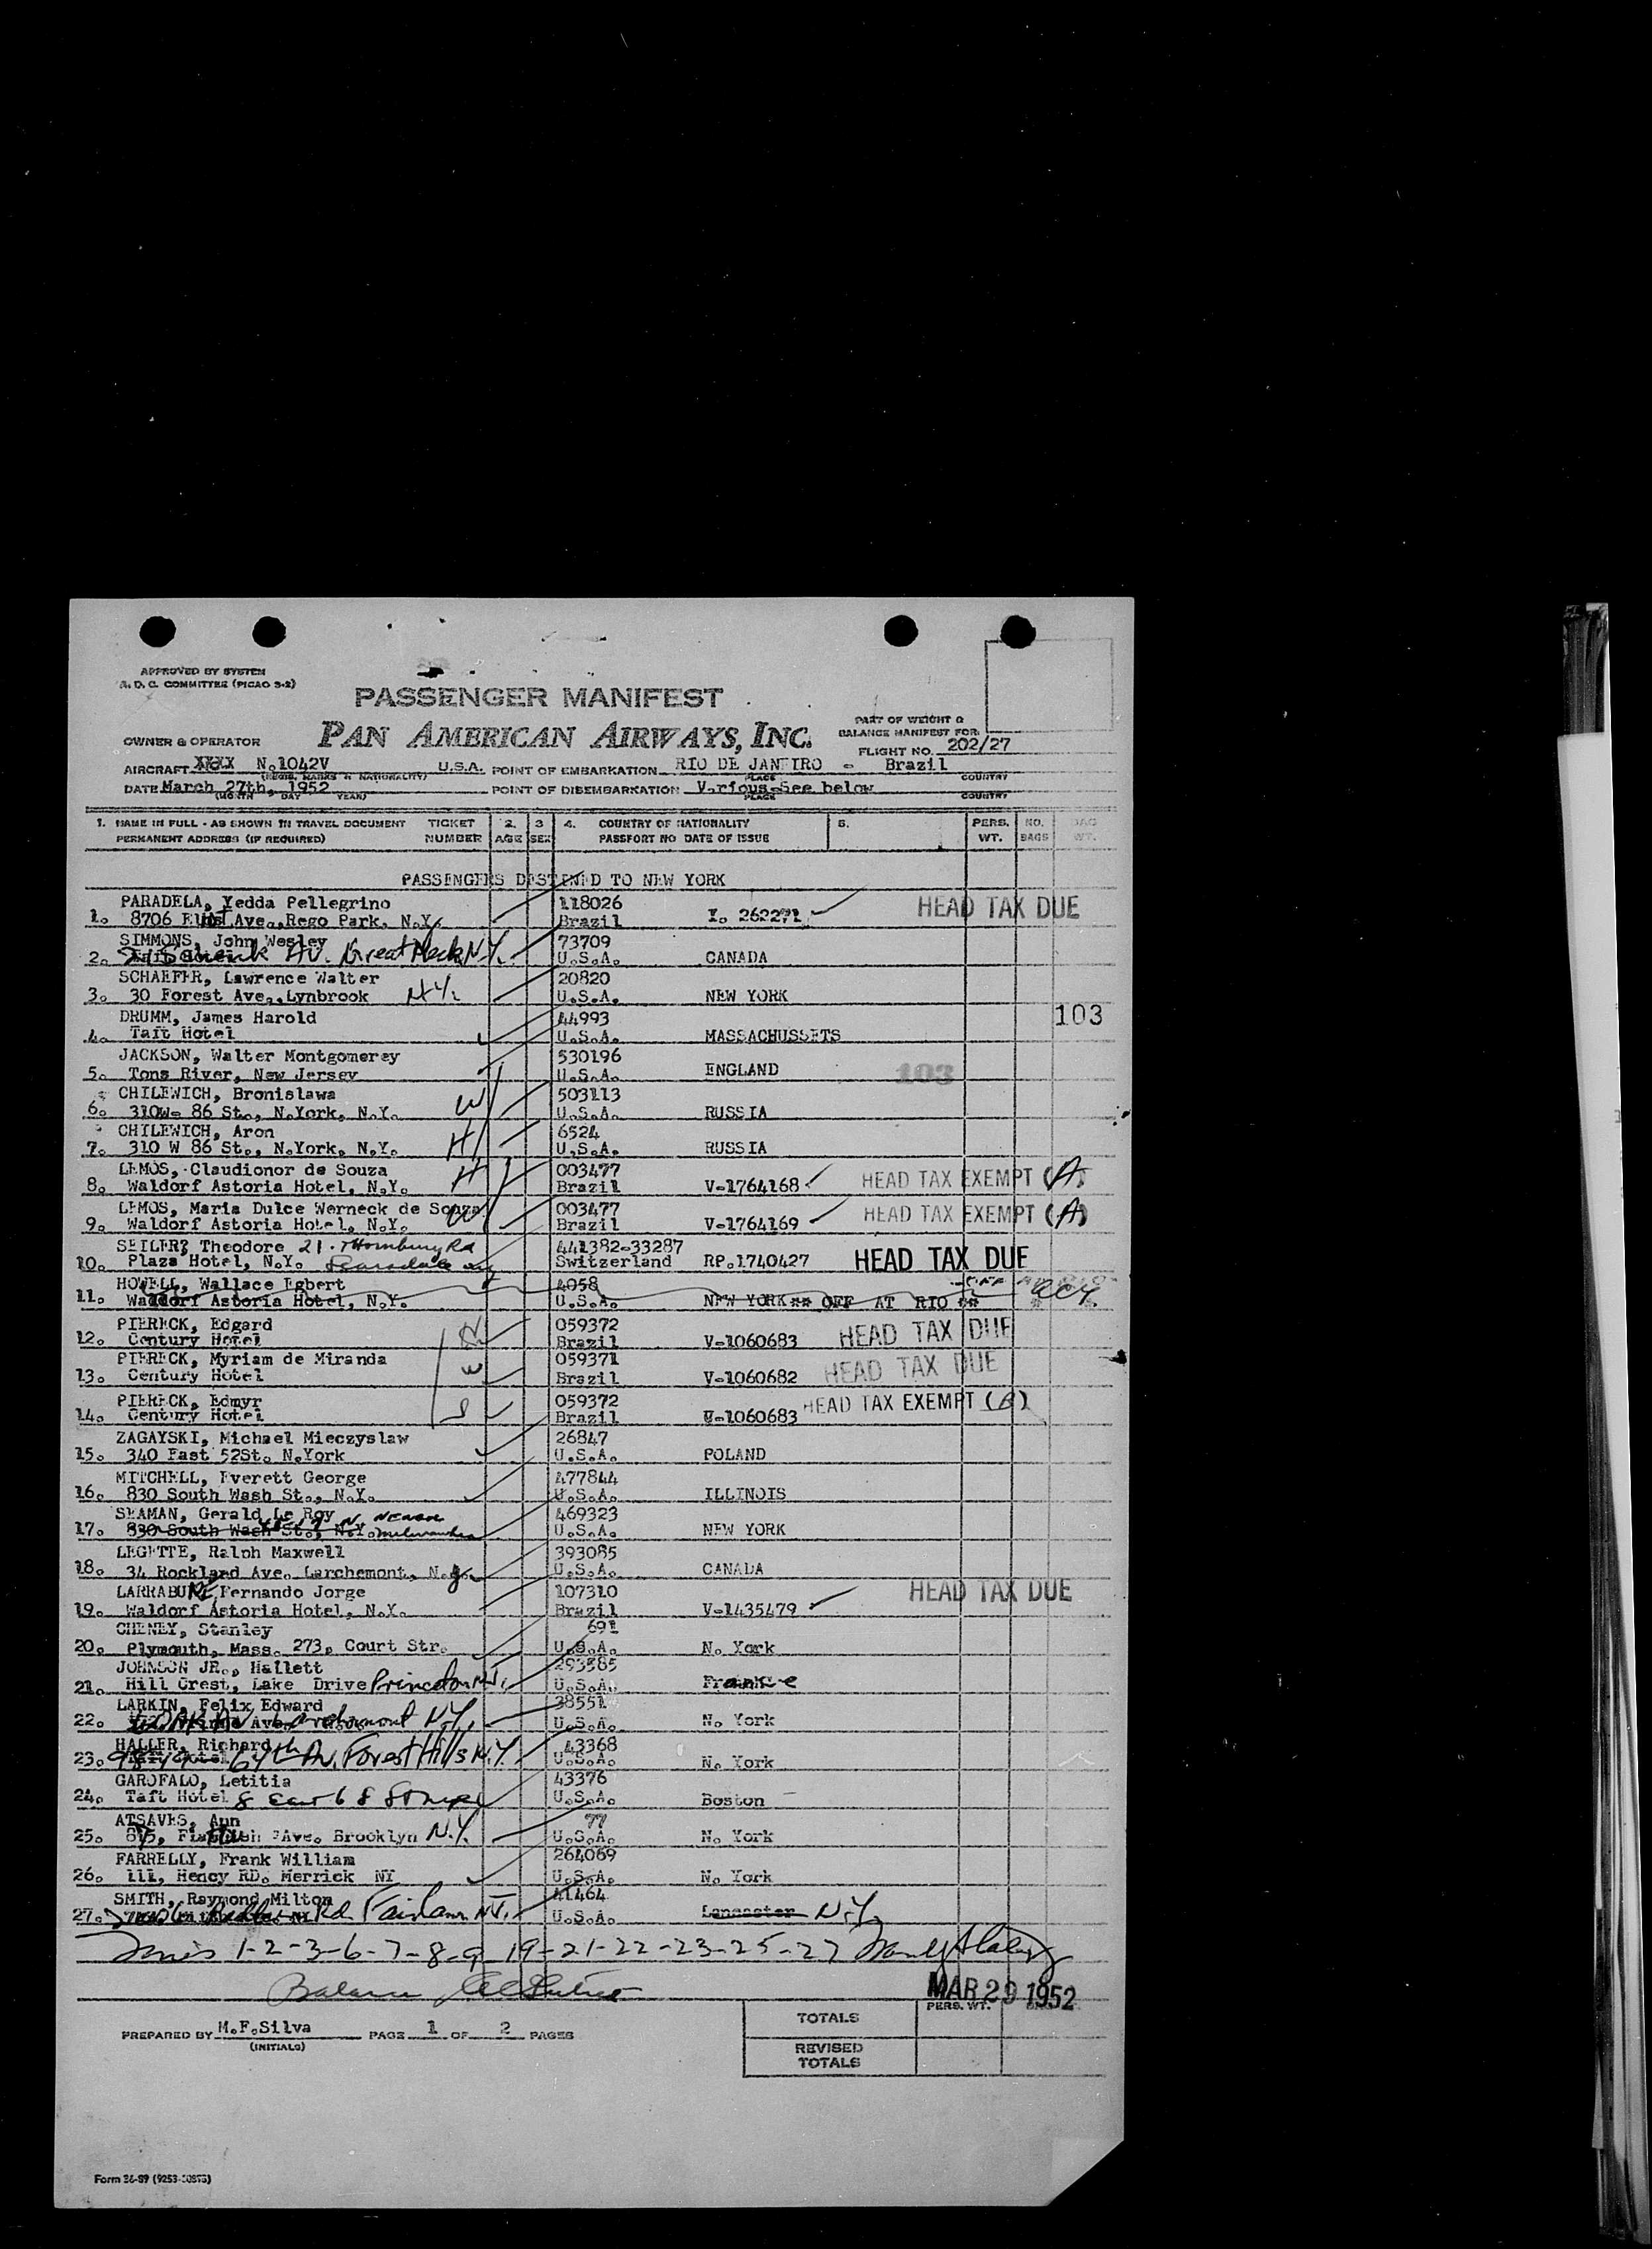 APPROVED BY SYSTEM
A. D. C. COMMITTEE (PICAO 3-2)
PASSENGER MANIFEST
PAN AMERICAN AIRWAYS, INC.
PART OF WEIGHT &
BALANCE MANIFEST FOR
OWNER & OPERATOR
FLIGHT NO. 202/27
AIRCRAFT XXXX N.1042V U.S.A. POINT OF EMBARKATION RIO DE JANEIRO - Brazil
(REGIS. MARKS & NATIONALITY) PLACE COUNTRY
DATE March 27th, 1952 POINT OF DISEMBARKATION Various-See below
(MONTH DAY YEAR) PLACE COUNTRY
1. NAME IN FULL - AS SHOWN IN TRAVEL DOCUMENT TICKET 2. 3 4. COUNTRY OF NATIONALITY 5. PERS. NO. BAG
PERMANENT ADDRESS (IF REQUIRED) NUMBER AGE SEX PASSPORT NO DATE OF ISSUE WT. BAGS WT.
PASSENGERS DESTINED TO NEW YORK
PARADELA, Yedda Pellegrino 118026 HEAD TAX DUE
1. 8706 Ave., Rego Park, N.Y. Brazil I. 262271
SIMMONS, John Wesley 73709
2. Schenk Av. Great Neck N.Y. U.S.A. CANADA
SCHAEFER, Lawrence Walter 20820
3. 30 Forest Ave., Lynbrook N.Y. U.S.A. NEW YORK
DRUMM, James Harold 44993 103
4. Taft Hotel U.S.A. MASSACHUSSETS
JACKSON, Walter Montgomerey 530196
5. Tons River, New Jersey U.S.A. ENGLAND 103
CHILEWICH, Bronislawa 503113
6. 310W- 86 St., N.York, N.Y. W U.S.A. RUSSIA
CHILEWICH, Aron 6524
7. 310 W 86 St., N.York, N.Y. H U.S.A. RUSSIA
LEMOS, Claudionor de Souza 003477
8. Waldorf Astoria Hotel, N.Y. H Brazil V-1764168 HEAD TAX EXEMPT (A)
LEMOS, Maria Dulce Werneck de Souza 003477
9. Waldorf Astoria Hotel, N.Y. W Brazil V-1764169 HEAD TAX EXEMPT (A)
SEILER, Theodore 21. Thornbury Rd 441382-33287
10. Plaza Hotel, N.Y. Scarsdale Switzerland RP.1740427 HEAD TAX DUE
HOWELL, Wallace Egbert 4058
11. Waldorf Astoria Hotel, N.Y. U.S.A. NEW YORK ** OFF AT RIO **
PIERECK, Edgard 059372
12. Century Hotel Brazil V-1060683 HEAD TAX DUE
PIERECK, Myriam de Miranda 059371
13. Century Hotel W Brazil V-1060682 HEAD TAX DUE
PIERECK, Edmyr 059372
14. Century Hotel S Brazil V-1060683 HEAD TAX EXEMPT
ZAGAYSKI, Michael Mieczyslaw 26847
15. 340 East 52St. N.York U.S.A. POLAND
MITCHELL, Everett George 477844
16. 830 South Wash St., N.Y. U.S.A. ILLINOIS
SEAMAN, Gerald Le Roy 469323
17. 830 South Wash St., N.Y. Milwaukee U.S.A. NEW YORK
LEGETTE, Ralph Maxwell 393085
18. 34 Rockland Ave. Larchemont, N.Y. U.S.A. CANADA
LARRABURE, Fernando Jorge 107310 HEAD TAX DUE
19. Waldorf Astoria Hotel, N.Y. Brazil V-1435479
CHENEY, Stanley 691
20. Plymouth, Mass. 273, Court Str. U.S.A. N. York
JOHNSON JR., Hallett 293585
21. Hill Crest, Lake Drive Princeton N.J. U.S.A. France
LARKIN, Felix Edward 38551
22. Larchmont N.Y. U.S.A. N. York
HALLER, Richard 43368
23. 64th Av. Forest Hills N.Y. U.S.A. N. York
GAROFALO, Letitia 43376
24. Taft Hotel 8 East 68 St U.S.A. Boston
ATSAVES, Ann 77
25. Ave. Brooklyn N.Y. U.S.A. N. York
FARRELLY, Frank William 264069
26. 111, Hency RD. Merrick NY U.S.A. N. York
SMITH, Raymond Milton 41464
27. Rd Fairlawn N.J. U.S.A. Lancaster N.Y.
1-2-3-6-7-8-9 19-21-22-23-25-27
Balance
MAR 29 1952
PERS. WT.
TOTALS
PREPARED BY M.F.Silva PAGE 1 OF 2 PAGES
(INITIALS)
REVISED
TOTALS
Form 36-89